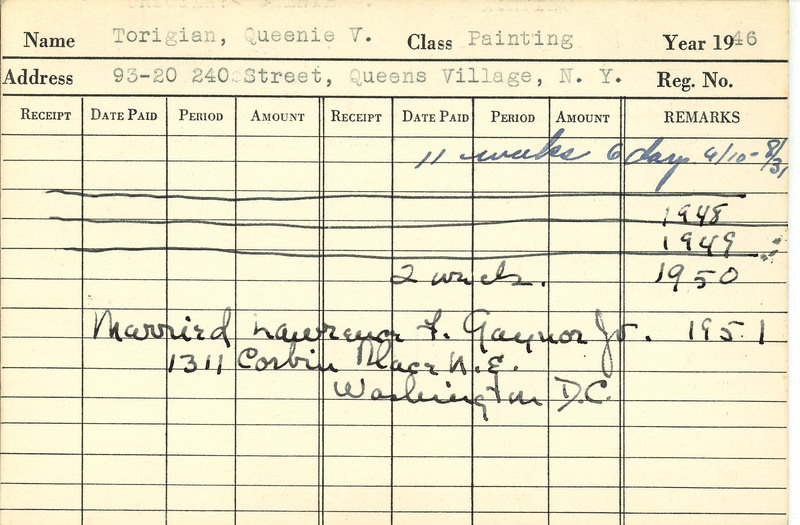 Name Torigian, Queenie V. Class Painting Year 1946
Address 93-20 240 Street, Queens Village, N. Y. Reg. No.
RECEIPT DATE PAID PERIOD AMOUNT RECEIPT DATE PAID PERIOD AMOUNT REMARKS
11 weeks 6 day 6/10-8/31
1948
1949
2 weeks. 1950
Married Lawrence F. Gaynor Jr. 1951
1311 Corbin Place N.E.
Washington D.C.